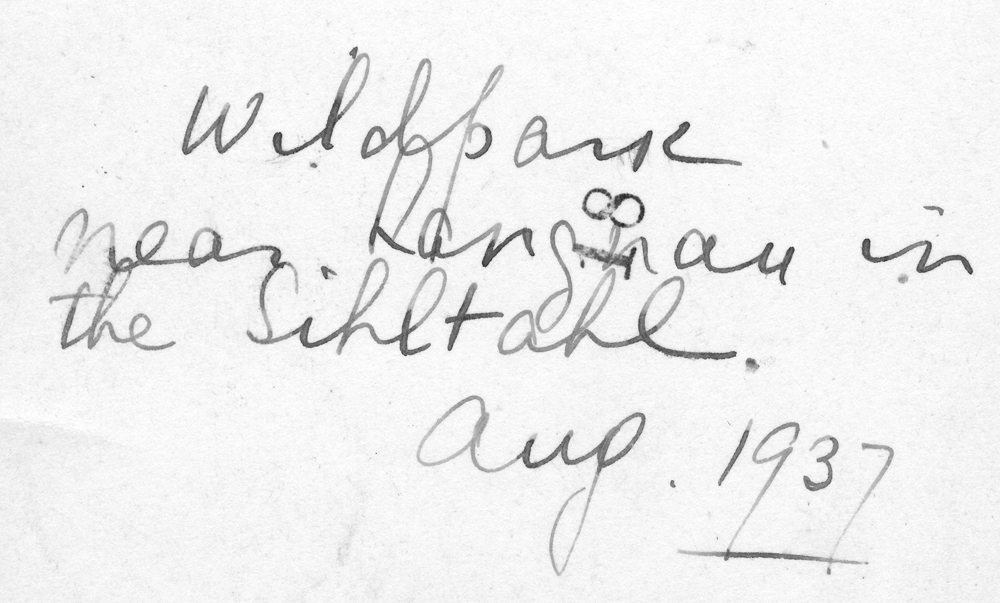 Wildpark
near Langnau in
the Sihltahl.
Aug. 1937
18